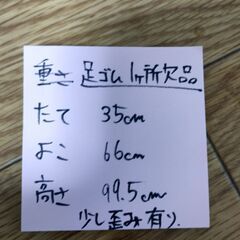 重さ 足ゴム 1ヶ所欠品
たて 35cm
よこ 66cm
高さ 99.5cm
少し歪み有り